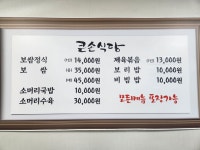 큰손식당
보쌈정식 14,000원
보쌈 35,000원
45,000원
소머리국밥 10,000원
소머리수육 30,000원
제육볶음 13,000원
보리밥 10,000원
비빔밥 10,000원
모든메뉴 포장가능